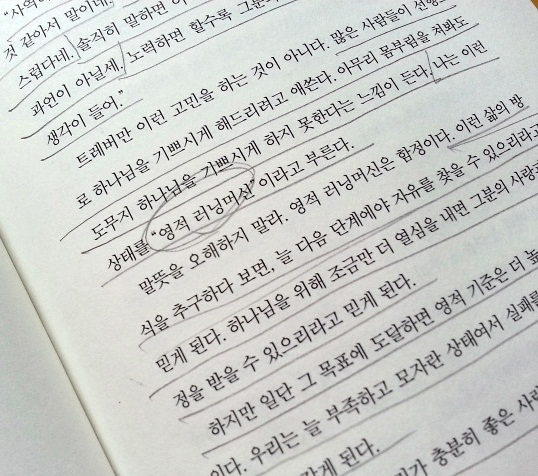 "사역
것 같아서 말이네.
스럽다네. 솔직히 말하면 이
과언이 아닐세. 노력하면 할수록 그분
생각이 들어."
트레버만 이런 고민을 하는 것이 아니다. 많은 사람들이 선행
로 하나님을 기쁘시게 해드리려고 애쓴다. 아무리 몸부림을 쳐봐도
도무지 하나님을 기쁘시게 하지 못한다는 느낌이 든다. 나는 이런
상태를 "영적 러닝머신"이라고 부른다.
말뜻을 오해하지 말라. 영적 러닝머신은 함정이다. 이런 삶의 방
식을 추구하다 보면, 늘 다음 단계에야 자유를 찾을 수 있으리라고
믿게 된다. 하나님을 위해 조금만 더 열심을 내면 그분의 사랑과
정을 받을 수 있으리라고 믿게 된다.
하지만 일단 그 목표에 도달하면 영적 기준은 더 높
이다. 우리는 늘 부족하고 모자란 상태여서 실패를
게 된다. 충분히 좋은 사람